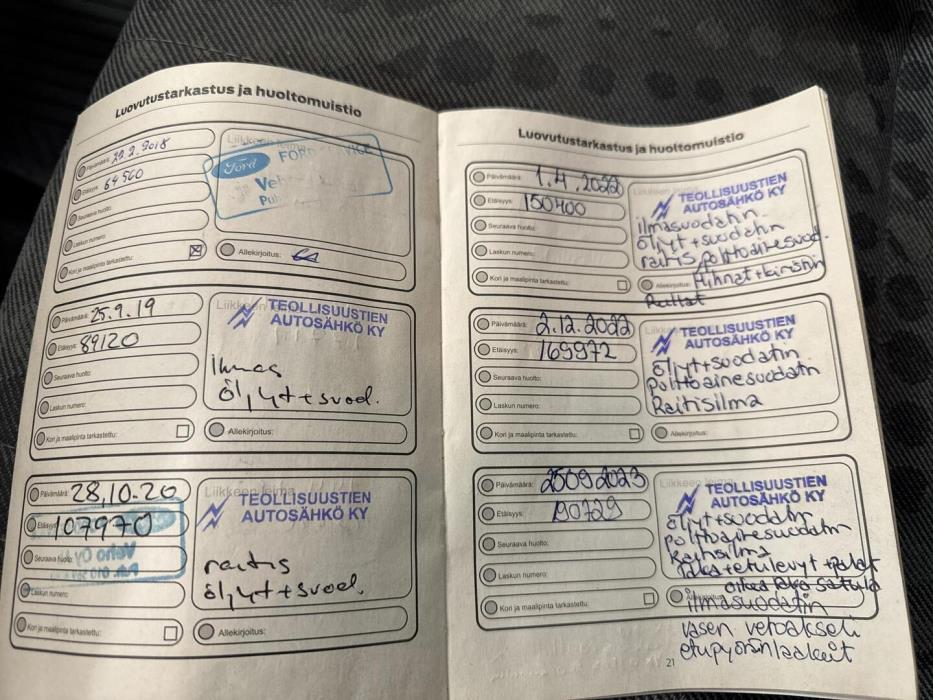 Luovutustarkastus ja huoltomuistio
Päivämäärä:
Liikkeen leima
Ford
FORD
Etäisyys: 64560
Seuraava huolto:
Laskun numero:
Kori ja maalipinta tarkastettu:
Allekirjoitus:
Päivämäärä: 25.9.19
Liikkeen
TEOLLISUUSTIEN
AUTOSÄHKÖ KY
Etäisyys: 89120
Seuraava huolto:
Ilmas
Laskun numero:
öljyt+suod.
Kori ja maalipinta tarkastettu:
Allekirjoitus:
Päivämäärä: 28,10-20
Liikkeen leima
TEOLLISUUSTIEN
AUTOSÄHKÖ KY
Etäisyys: 107970
Veho Oy
Seuraava huolto:
raitis
Laskun numero:
öljyt+suod.
Kori ja maalipinta tarkastettu:
Allekirjoitus:
Luovutustarkastus ja huoltomuistio
Päivämäärä: 1.4.2022
TEOLLISUUSTIEN
AUTOSÄHKÖ KY
Etäisyys: 150400
ilmasuodatin
Seuraava huolto:
öljyt+suodatin
Laskun numero:
raitis polttoainesuod.
Kori ja maalipinta tarkastettu:
Allekirjoitus:
Hihnat+kiristin
Rullat
Päivämäärä: 2.12.2022
TEOLLISUUSTIEN
AUTOSÄHKÖ KY
Etäisyys: 169972
öljyt+suodatin
Seuraava huolto:
polttoainesuodatin
Laskun numero:
Raitisilma
Kori ja maalipinta tarkastettu:
Allekirjoitus:
Päivämäärä: 25092023
Liikkeen leima
TEOLLISUUSTIEN
AUTOSÄHKÖ KY
Etäisyys: 190729
öljyt+suodatin
Seuraava huolto:
polttoainesuodatin
Raitisilma
Laskun numero:
taka+etulevyt+palat
oikea taka satula
Kori ja maalipinta tarkastettu:
Allekirjoitus:
ilmasuodatin
vasen vetoakseli
21
etupyöränlaakerit